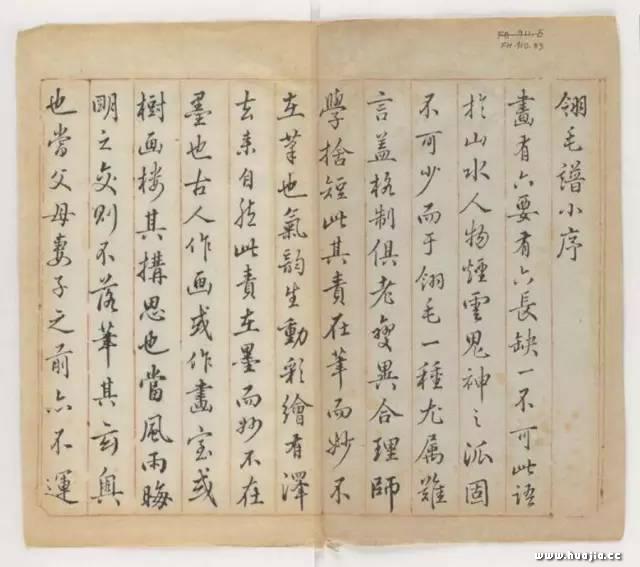 翎毛譜小序
畫有六要有六長缺一不可此語
於山水人物煙雲鬼神之派固
不可少而于翎毛一種尤属難
言盖格制俱老變異合理師
學捨短此其責在筆而妙不
在筆也氣韵生動彩繪有澤
去来自然此責在墨而妙不在
墨也古人作画或作畫室或
樹画楼其搆思也當風雨晦
明之交則不落筆其玄奥
也當父母妻子之前亦不運
FH 910.83
www.huajia.cc